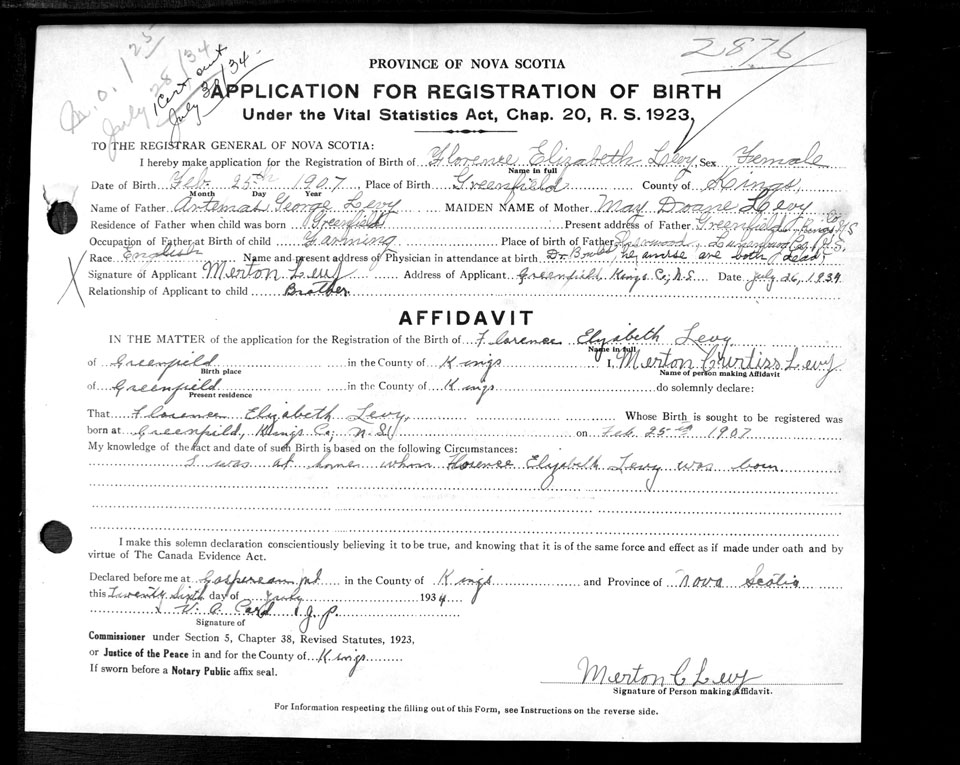 M.O. 1 25
July 28/34
Cert out
July 30/34
2876
PROVINCE OF NOVA SCOTIA
APPLICATION FOR REGISTRATION OF BIRTH
Under the Vital Statistics Act, Chap. 20, R. S. 1923
TO THE REGISTRAR GENERAL OF NOVA SCOTIA:
I hereby make application for the Registration of Birth of Florence Elizabeth Levy, Sex Female
Name in full
Date of Birth Feb. 25th 1907 Place of Birth Greenfield County of Kings,
Month Day Year
Name of Father Artemas George Levy MAIDEN NAME of Mother May Doane Levy
Residence of Father when child was born Greenfield Present address of Father Greenfield Kings Co NS
Occupation of Father at Birth of child Farming Place of birth of Father Lunenburg Co, N.S.
Race English Name and present address of Physician in attendance at birth Dr he nurse are both dead
Signature of Applicant Merton Levy Address of Applicant Greenfield, Kings Co; N.S. Date July 26, 1934
Relationship of Applicant to child Brother
AFFIDAVIT
IN THE MATTER of the application for the Registration of the Birth of Florence Elizabeth Levy
Name in full
of Greenfield in the County of Kings I, Merton Curtiss Levy
Birth place Name of person making Affidavit
of Greenfield in the County of Kings do solemnly declare:
Present residence
That Florence Elizabeth Levy, Whose Birth is sought to be registered was
born at Greenfield, Kings Co; N.S. on Feb. 25th 1907
My knowledge of the fact and date of such Birth is based on the following Circumstances:
I was at home when Florence Elizabeth Levy was born
I make this solemn declaration conscientiously believing it to be true, and knowing that it is of the same force and effect as if made under oath and by
virtue of The Canada Evidence Act.
Declared before me at Gaspereau in the County of Kings and Province of Nova Scotia
this Twenty Sixth day of July 1934
V. A. Card J.P.
Signature of
Commissioner under Section 5, Chapter 38, Revised Statutes, 1923,
or Justice of the Peace in and for the County of Kings
If sworn before a Notary Public affix seal.
Merton C Levy
Signature of Person making Affidavit.
For Information respecting the filling out of this Form, see Instructions on the reverse side.